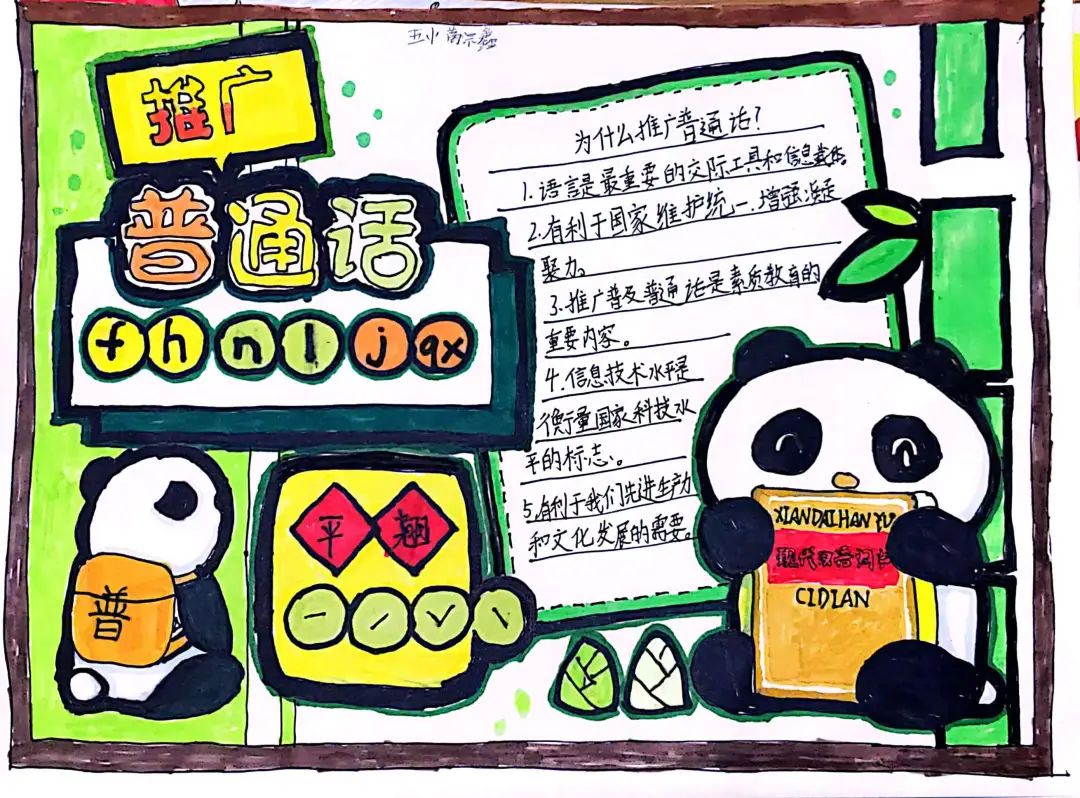 五小
推广
普通话
f h n l j qx
为什么推广普通话?
1.语言是最重要的交际工具和信息载体
2.有利于国家维护统一.增强凝
聚力。
3.推广普及普通话是素质教育的
重要内容。
4.信息技术水平是
衡量国家科技水
平的标志。
5.有利于我们先进生产力
和文化发展的需要。
普
平 翘
ˉ ˊ ˇ ˋ
XIANDAIHANYU
现代汉语词
CIDIAN